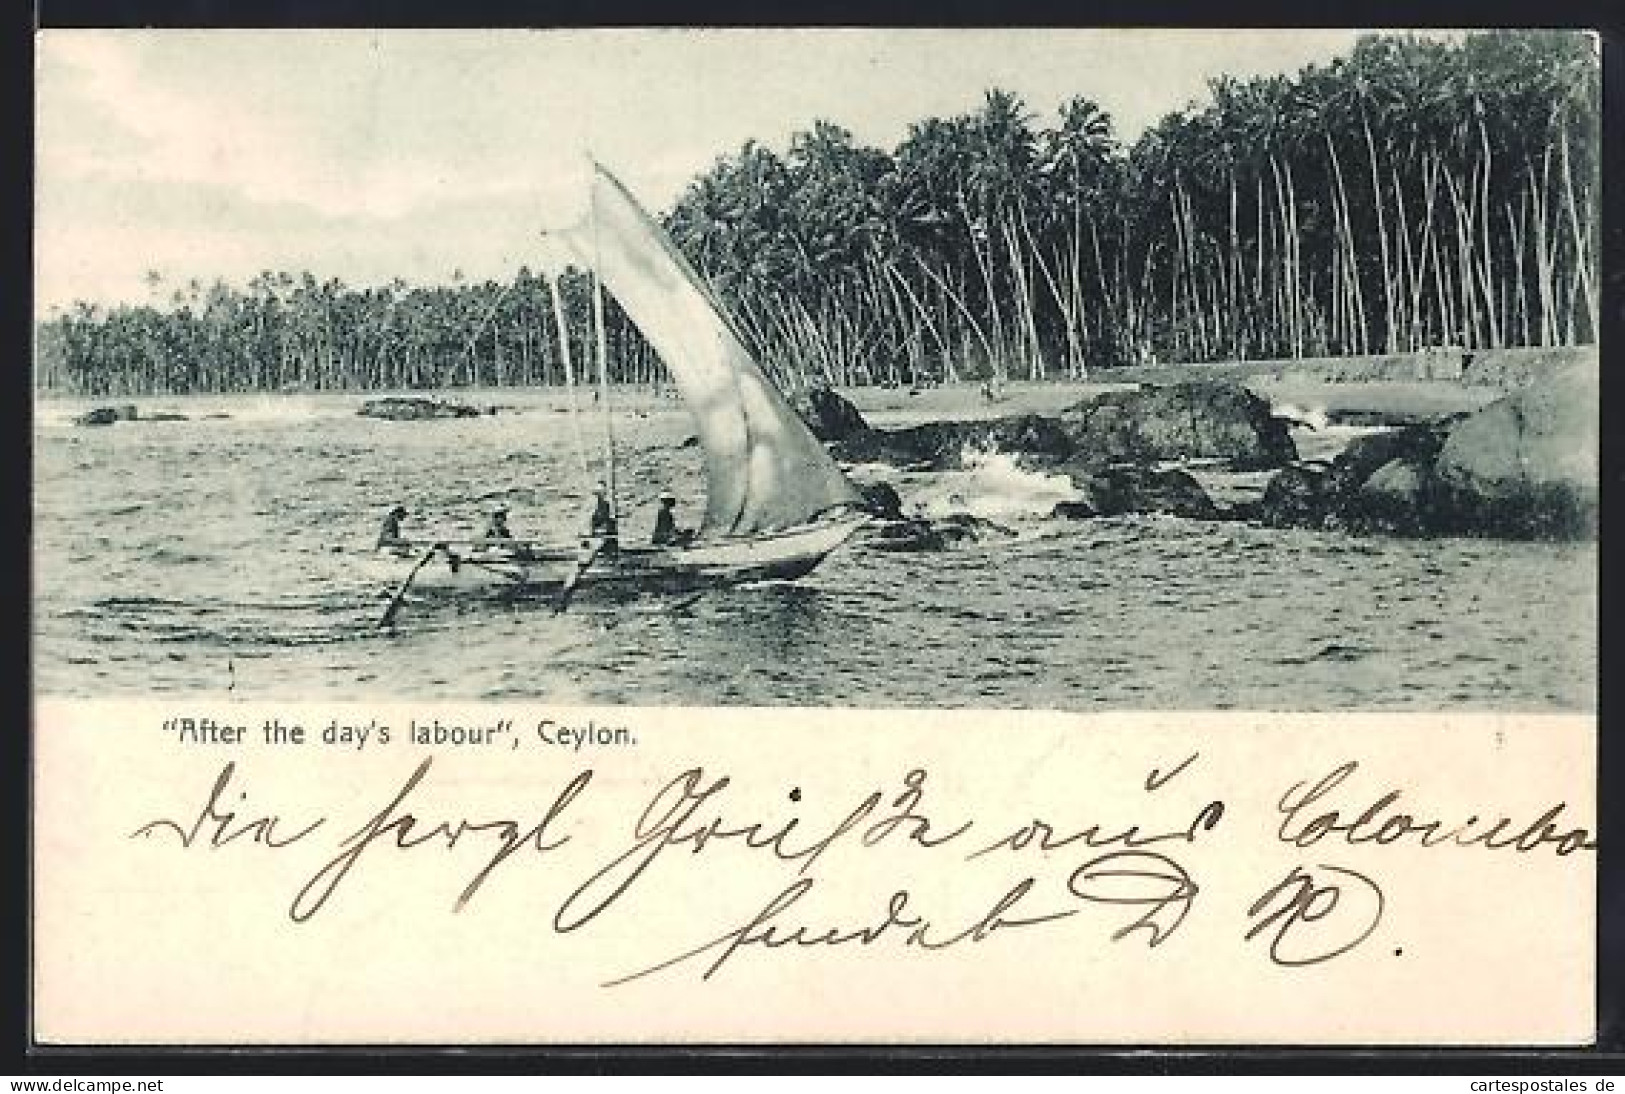 "After the day's labour", Ceylon.
Die herzl Grüße aus Colombo
sendet D
cartespostales de